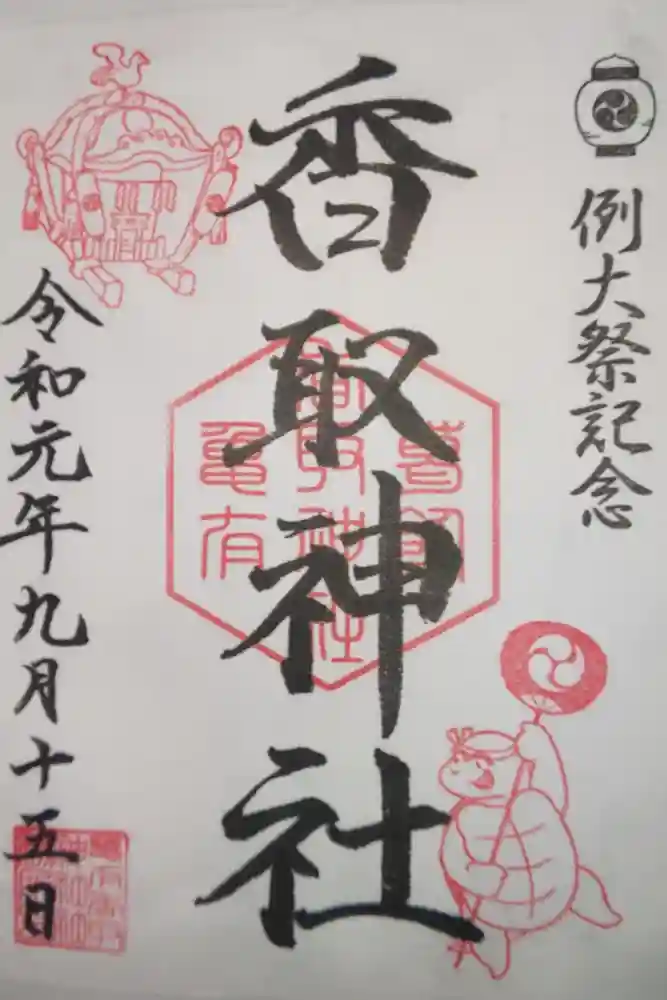 例大祭記念
香取神社
葛飾
香取神社
亀有
令和元年九月十五日